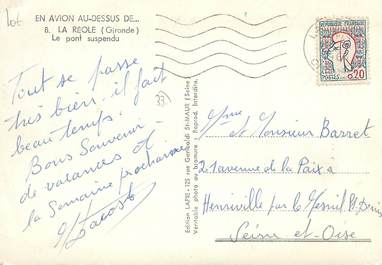 lot
EN AVION AU-DESSUS DE...
8. LA REOLE (Gironde)
Le pont suspendu
Tout se passe
très bien, il fait
beau temps.
Bons Souvenir
de vacances et
la Semaine prochaine
33
Edition LAPIE - 125 rue Garibaldi St-MAUR (Seine)
Véritable photo au bromure - Reprod. Interdite.
0,20
Mme et Monsieur Barret
21 avenue de la Paix à
Henriville par le Mesnil St Denis
Seine-et-Oise